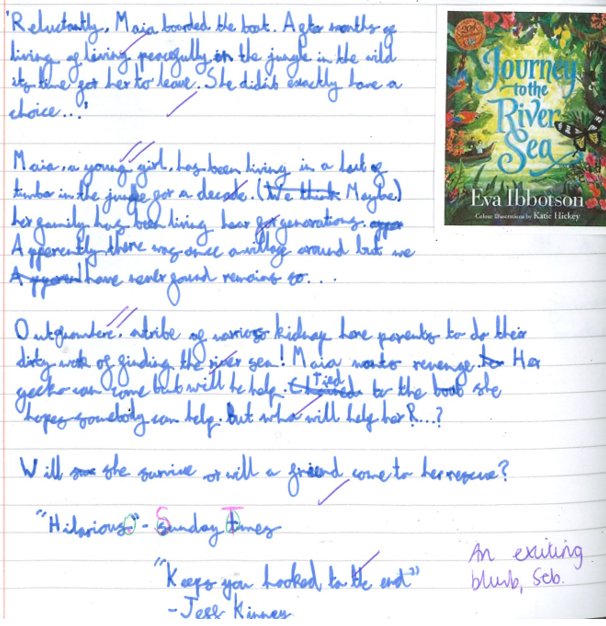 'Reluctantly, Maia boarded the boat. After months of
living of living peacefully in the jungle in the wild
its time for her to leave. She didn't exactly have a
choice...'
Maia, a young girl, has been living in a hut of
timber in the jungle for a decade. (We think Maybe)
her family has been living hear for generations.
Apperently there was once a village around but we
have never found remains so...
Out of nowhere, a tribe of warriors kidnap here parents to do their
dirty work of finding the river sea! Maia wants revenge. Her
gecko can come but will he help. Tied to the boat she
hopes somebody can help. But who will help her?...?
Will she survive or will a friend come to her rescue?
"Hilarious" - Sunday Times
"Keeps you hooked to the end"
- Jess Kinney
An exiting
blurb, Seb.
Journey
to the
River
Sea
Eva Ibbotson
Colour Illustrations by Katie Hickey